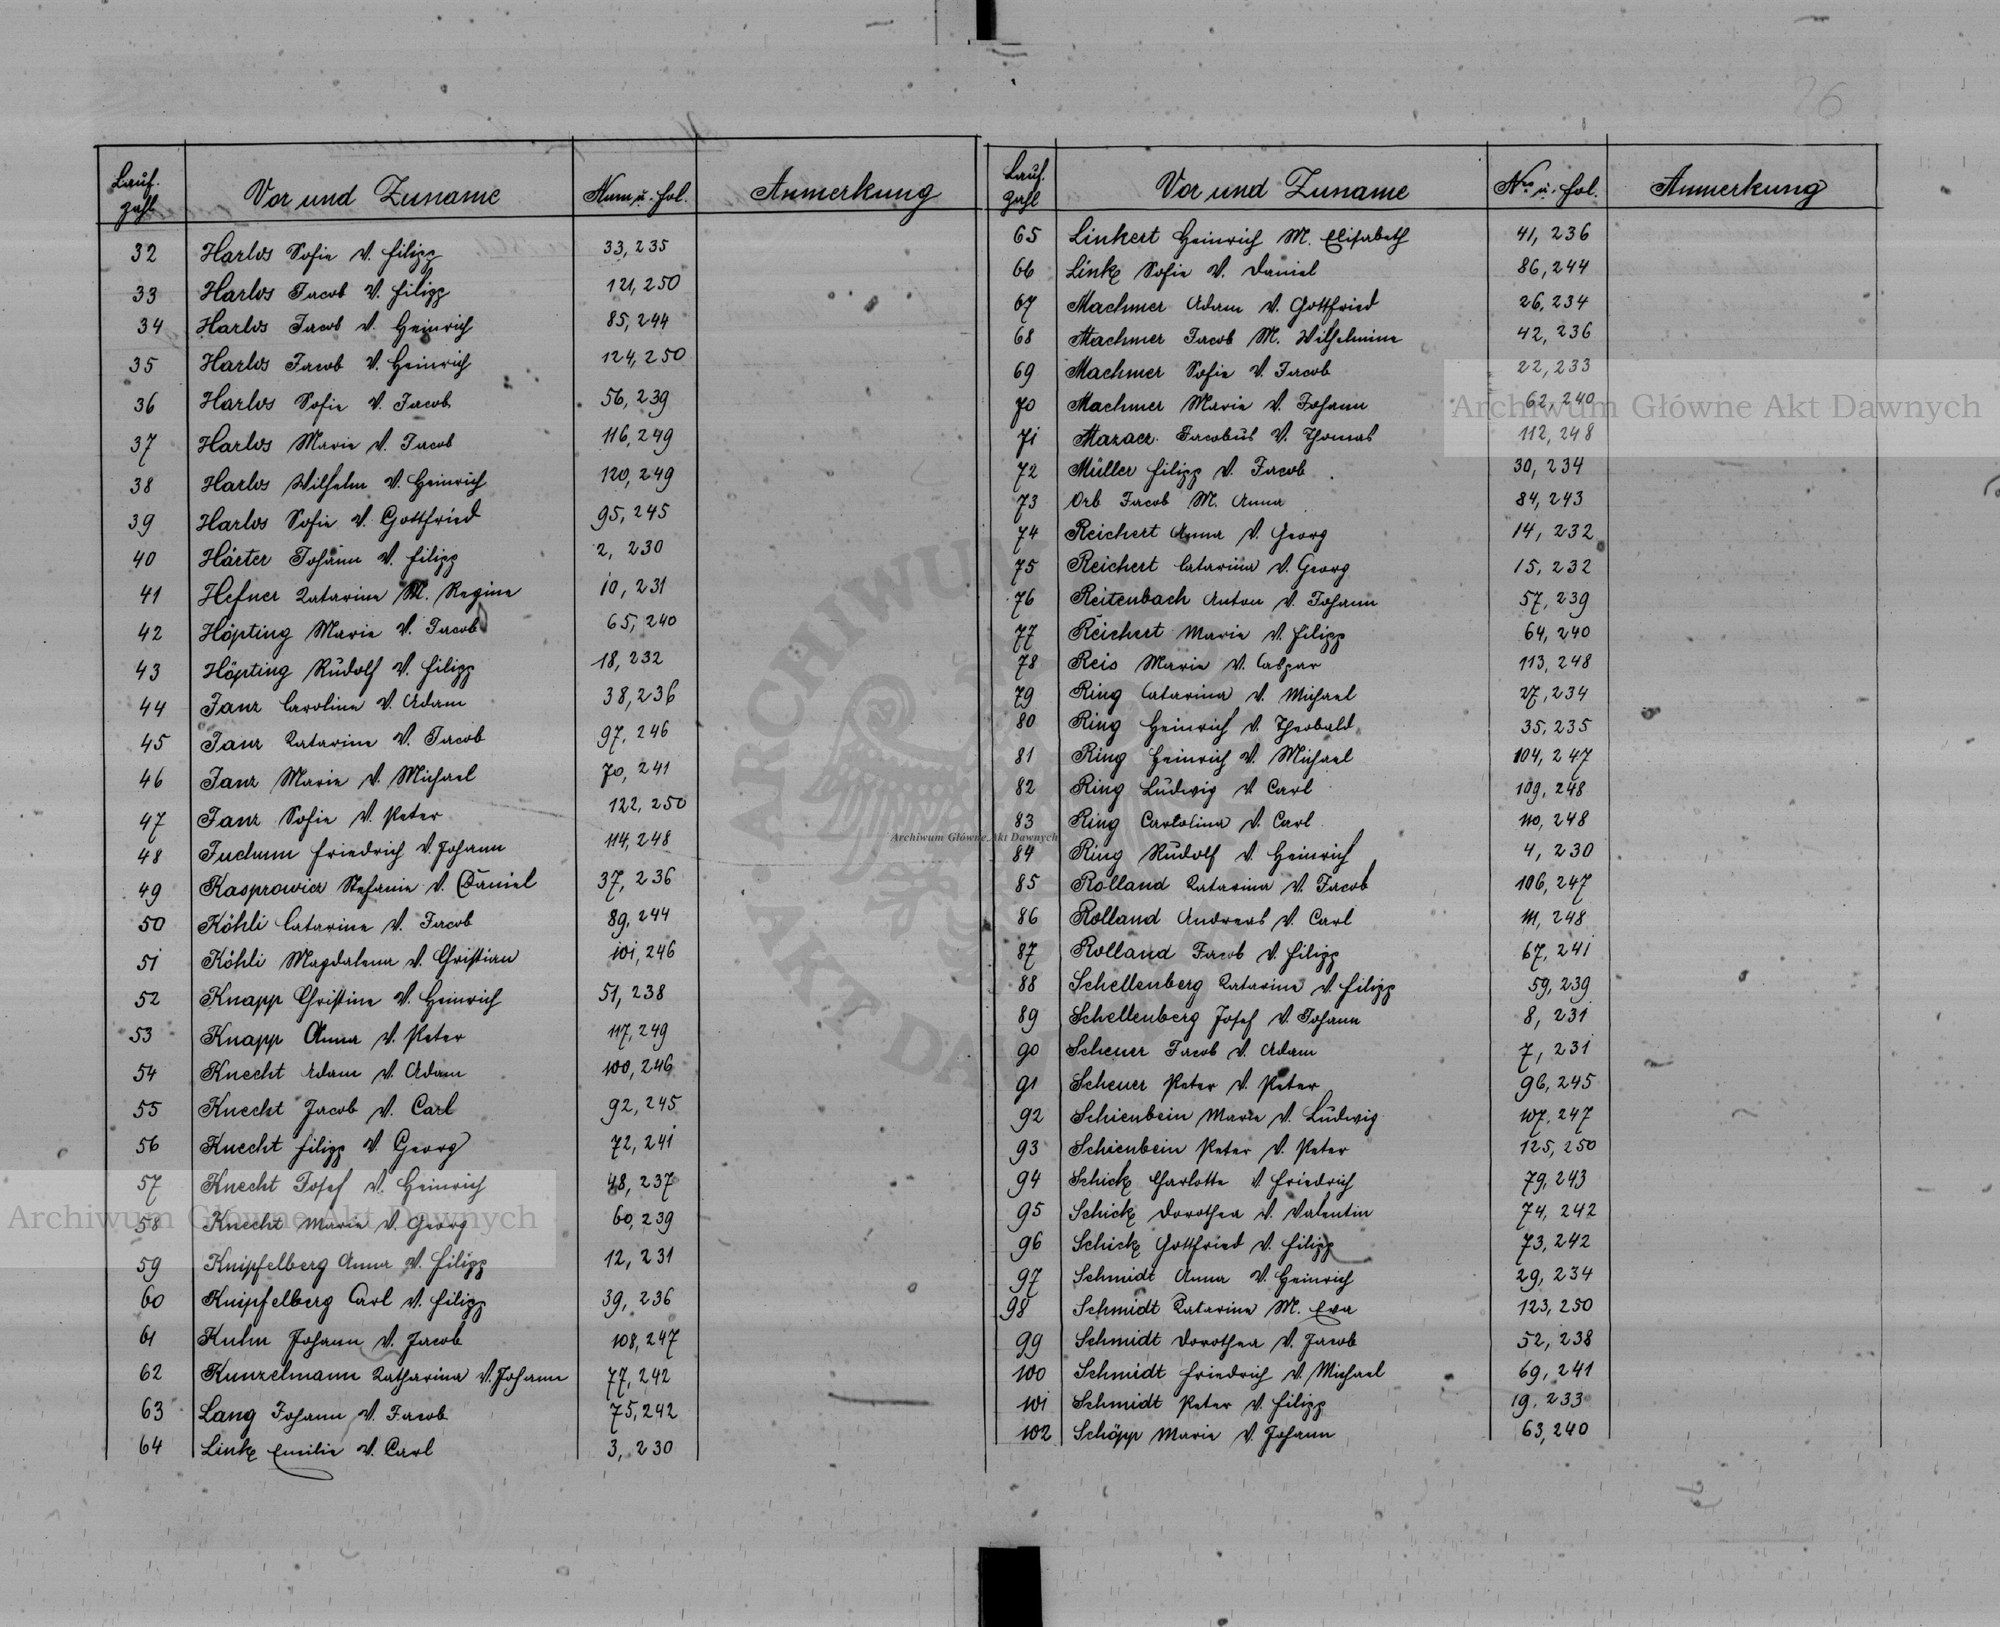 26
Lauf. Zahl Vor und Zuname Num u. Fol. Anmerkung
32 Harlos Sofie V. Filipp 33, 235
33 Harlos Jacob V. Filipp 121, 250
34 Harlos Jacob V. Heinrich 85, 244
35 Harlos Jacob V. Heinrich 124, 250
36 Harlos Sofie V. Jacob 56, 239
37 Harlos Marie V. Jacob 116, 249
38 Harlos Wilhelm V. Heinrich 120, 249
39 Harlos Sofie V. Gottfried 95, 245
40 Härter Johann V. Filipp 2, 230
41 Hefner Katarine M. Regine 10, 231
42 Höpting Marie V. Jacob 65, 240
43 Höpting Rudolf V. Filipp 18, 232
44 Janz Caroline V. Adam 38, 236
45 Janz Katarine V. Jacob 97, 246
46 Janz Marie V. Michael 70, 241
47 Janz Sofie V. Peter 122, 250
48 Juchum Friedrich V. Johann 114, 248
49 Kasprowicz Stefanie V. Daniel 37, 236
50 Köhli Catarine V. Jacob 89, 244
51 Köhli Magdalena V. Christian 101, 246
52 Knapp Christine V. Heinrich 51, 238
53 Knapp Anna V. Peter 117, 249
54 Knecht Adam V. Adam 100, 246
55 Knecht Jacob V. Carl 92, 245
56 Knecht Filipp V. Georg 72, 241
57 Knecht Josef V. Heinrich 48, 237
58 Knecht Marie V. Georg 60, 239
59 Knipfelberg Anna V. Filipp 12, 231
60 Knipfelberg Carl V. Filipp 39, 236
61 Kuhn Johann V. Jacob 108, 247
62 Kunzelmann Katharina V. Johann 77, 242
63 Lang Johann V. Jacob 75, 242
64 Link Emilie V. Carl 3, 230
Lauf. Zahl Vor und Zuname Nro u. Fol. Anmerkung
65 Linkert Heinrich M. Elisabeth 41, 236
66 Link Sofie V. Daniel 86, 244
67 Machmer Adam V. Gottfried 26, 234
68 Machmer Jacob M. Wilhelmine 42, 236
69 Machmer Sofie V. Jacob 22, 233
70 Machmer Marie V. Johann 62, 240
71 Mazacz Jacobus V. Thomas 112, 248
72 Müller Filipp V. Jacob 30, 234
73 Orb Jacob M. Anna 84, 243
74 Reichert Anna V. Georg 14, 232
75 Reichert Catarina V. Georg 15, 232
76 Reitenbach Anton V. Johann 57, 239
77 Reichert Marie V. Filipp 64, 240
78 Reis Marie V. Caspar 113, 248
79 Ring Catarina V. Michael 27, 234
80 Ring Heinrich V. Theobald 35, 235
81 Ring Heinrich V. Michael 104, 247
82 Ring Ludwig V. Carl 109, 248
83 Ring Carolina V. Carl 110, 248
84 Ring Rudolf V. Heinrich 4, 230
85 Rolland Katarina V. Jacob 106, 247
86 Rolland Andreas V. Carl 111, 248
87 Rolland Jacob V. Filipp 67, 241
88 Schellenberg Katarina V. Filipp 59, 239
89 Schellenberg Josef V. Johann 8, 231
90 Scheuer Jacob V. Adam 7, 231
91 Scheuer Peter V. Peter 96, 245
92 Schienbein Marie V. Ludwig 107, 247
93 Schienbein Peter V. Peter 125, 250
94 Schick Charlotte V. Friedrich 79, 243
95 Schick Dorothea V. Valentin 74, 242
96 Schick Gottfried V. Filipp 73, 242
97 Schmidt Anna V. Heinrich 29, 234
98 Schmidt Katarine M. Eva 123, 250
99 Schmidt Dorothea V. Jacob 52, 238
100 Schmidt Friedrich V. Michael 69, 241
101 Schmidt Peter V. Filipp 19, 233
102 Schöpp Marie V. Johann 63, 240
Archiwum Główne Akt Dawnych
Archiwum Główne Akt Dawnych
Archiwum Główne Akt Dawnych